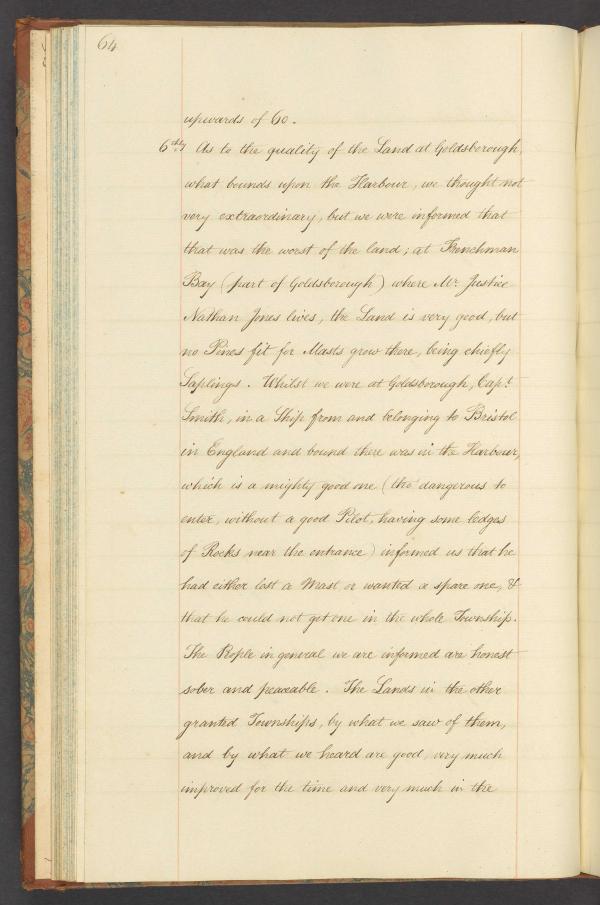 64
upwards of 60.
6thly As to the quality of the Land at Goldsborough,
what bounds upon the Harbour, we thought not
very extraordinary, but we were informed that
that was the worst of the land; at Frenchman
Bay (part of Goldsborough) where Mr. Justice
Nathan Jones lives, the Land is very good, but
no Pines fit for Masts grow there, being chiefly
Saplings. Whilst we were at Goldsborough, Capt.
Smith, in a Ship from and belonging to Bristol
in England and bound there was in the Harbour,
which is a mighty good one (tho' dangerous to
enter, without a good Pilot, having some ledges
of Rocks near the entrance) informed us that he
had either lost a Mast or wanted a spare one, &
that he could not get one in the whole Township.
The People in general we are informed are honest
sober and peaceable. The Lands in the other
granted Townships, by what we saw of them,
and by what we heard are good, very much
improved for the time and very much in the